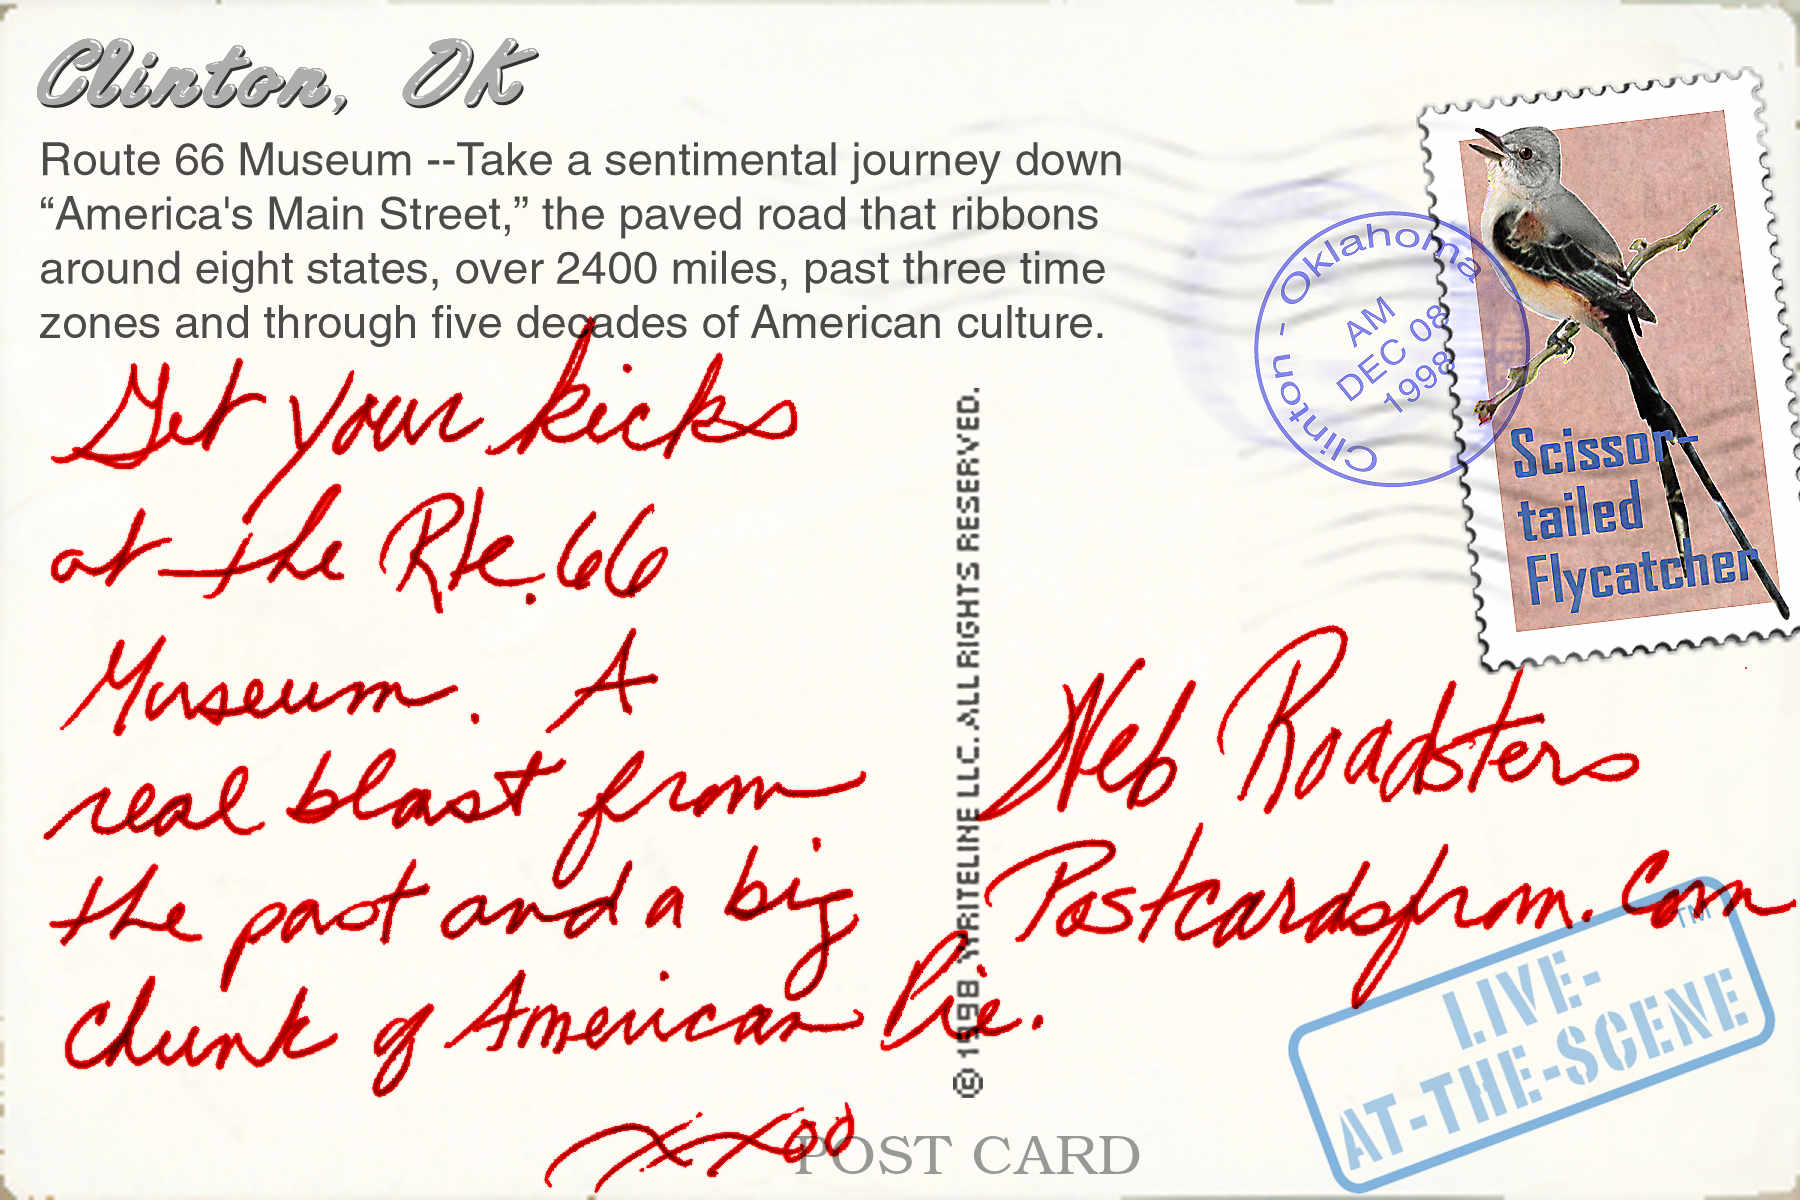 Clinton, OK
Route 66 Museum --Take a sentimental journey down
“America's Main Street,” the paved road that ribbons
around eight states, over 2400 miles, past three time
zones and through five decades of American culture.
Get your kicks
at the Rte. 66
Museum. A
real blast from
the past and a big
chunk of American Pie.
xxoo
© 1998 WRITELINE LLC. ALL RIGHTS RESERVED.
Clinton - Oklahoma
AM
DEC 08
1998
Scissor-
tailed
Flycatcher
Web Roadsters
Postcardsfrom.Com
LIVE-
AT-THE-SCENE
TM
POST CARD